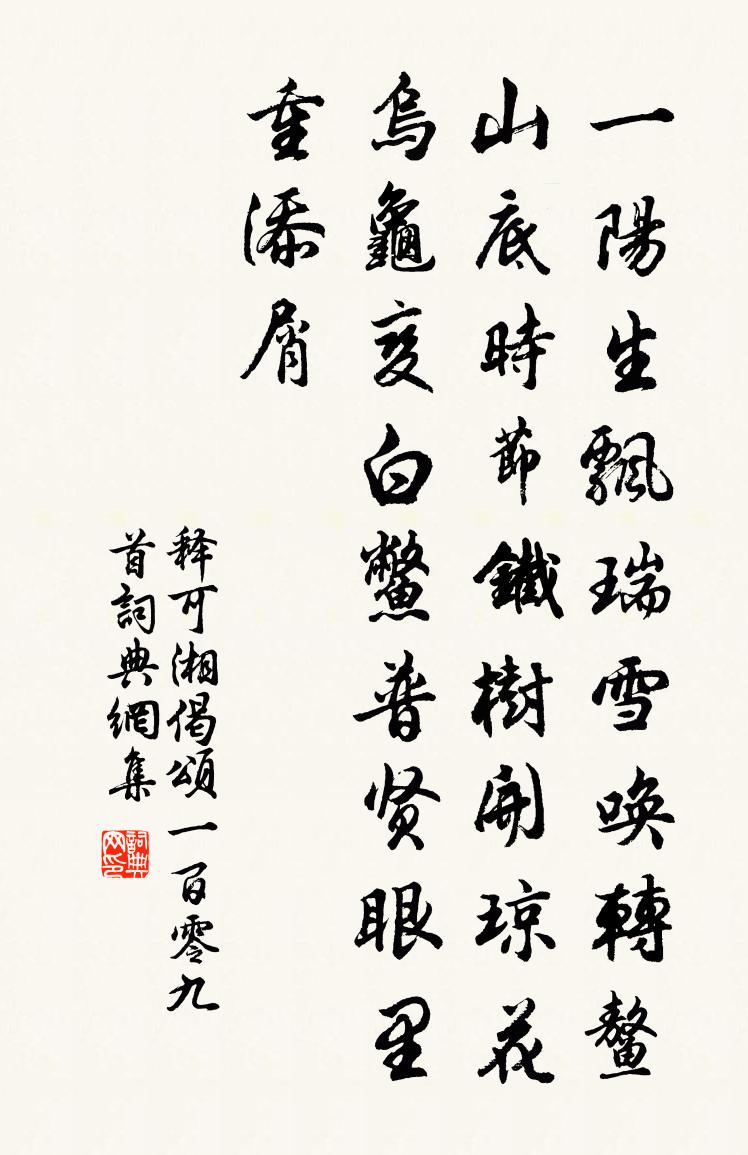 一陽生飄瑞雪喚轉鰲
山底時節鐵樹開琼花
烏龜变白鱉普贤眼里
重添屑
释可湘偈頌一百零九
首詞典網集
詞典网印